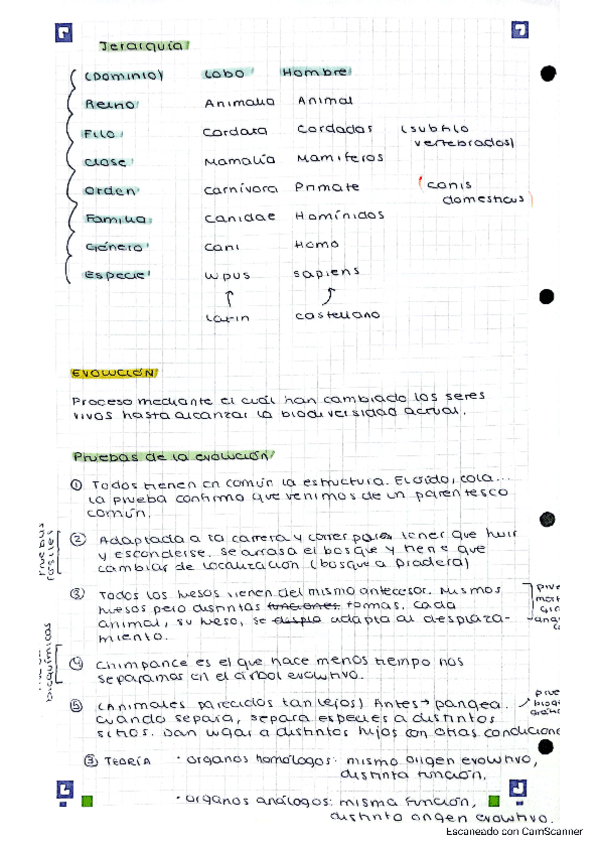 Jerarquía
(Dominio) Lobo Hombre
Reino Animalia Animal
Filo Cordata Cordados (subfilo
vertebrados)
Clase Mamalia Mamíferos
Orden Carnívora Primate (canis
domesticus)
Familia Canidae Homínidos
Género Cani Homo
Especie lupus sapiens
latin castellano
EVOLUCIÓN
Proceso mediante el cuál han cambiado los seres
vivos hasta alcanzar la biodiversidad actual.
Pruebas de la evolución
① Todos tienen en común la estructura. El oído, cola...
la prueba confirma que venimos de un parentesco
común.
② Adaptada a la carrera y correr para tener que huir
y esconderse. Se arrasa el bosque y tiene que
cambiar de localización (bosque a pradera)
③ Todos los huesos vienen del mismo antecesor. Mismos
huesos pero distintas funciones formas. Cada
animal, su hueso, se despla adapta al desplaza-
miento.
④ Chimpancé es el que hace menos tiempo nos
separamos en el árbol evolutivo.
bioquímicas
⑤ (Animales parecidos tan lejos) Antes → pangea.
cuando separa, separa especies a distintos
sitios. Dan lugar a distintos hijos con otras condicione
③ TEORÍA · organos homólogos: mismo origen evolutivo,
distinta función.
· organos análogos: misma función,
distinto origen evolutivo.
Escaneado con CamScanner